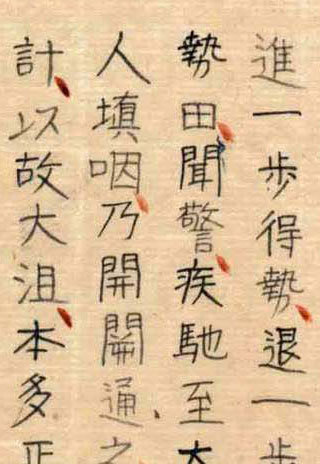 進一步得勢退一步
勢田聞警疾馳至大
人填咽乃開通之
計以故大沮本多正